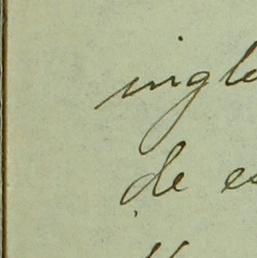 ingle
de es